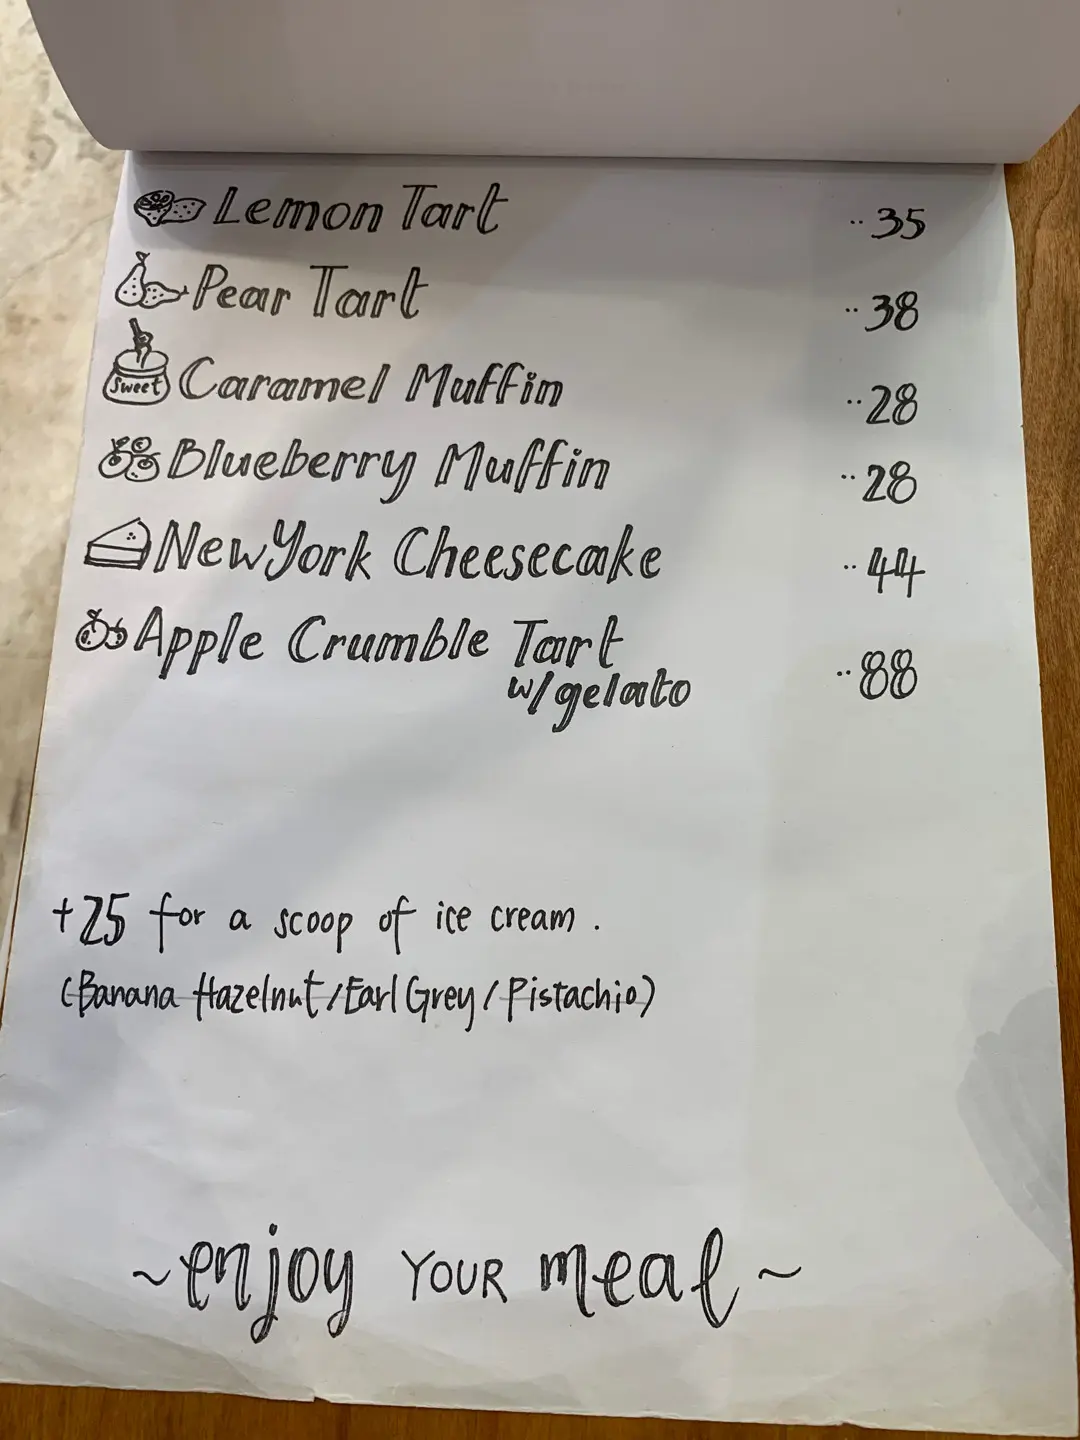 Lemon Tart ..35
Pear Tart ..38
Sweet
Caramel Muffin ..28
Blueberry Muffin ..28
New York Cheesecake ..44
Apple Crumble Tart ..88
w/gelato
+25 for a scoop of ice cream.
(Banana Hazelnut/Earl Grey/Pistachio)
~enjoy YOUR meal~